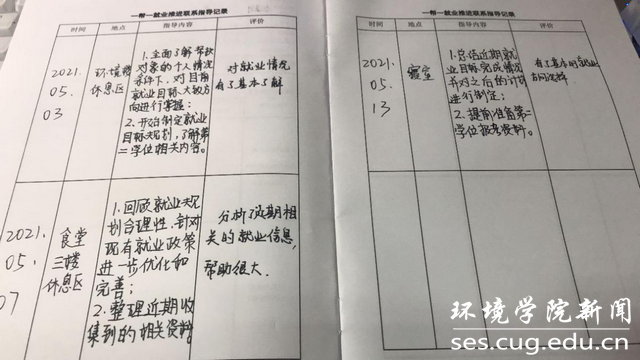 一帮一就业推进联系指导记录
时间
地点
指导内容
评价
2021.
05.
03
环境楼
休息区
1.全面了解帮扶
对象的个人情况
条件下，对目前
就业目标、大致方
向进行掌握；
2.开始制定就业
目标规划，了解第
二学位相关内容。
对就业情况
有了基本了解
2021.
05.
07
食堂
三楼
休息区
1.回顾就业规
划合理性，针对
现有就业政策
进一步优化和
完善；
2.整理近期收
集到的相关资料
分析了近期相
关的就业信息，
帮助很大。
一帮一就业推进联系指导记录
时间
地点
指导内容
评价
2021.
05.
13
寝室
1.总结近期就
业目标完成情况
并对之后的计划
进行制定；
2.提前准备第二
学位报考资料。
有了基本的就业
方向选择
环境学院新闻
ses.cug.edu.cn